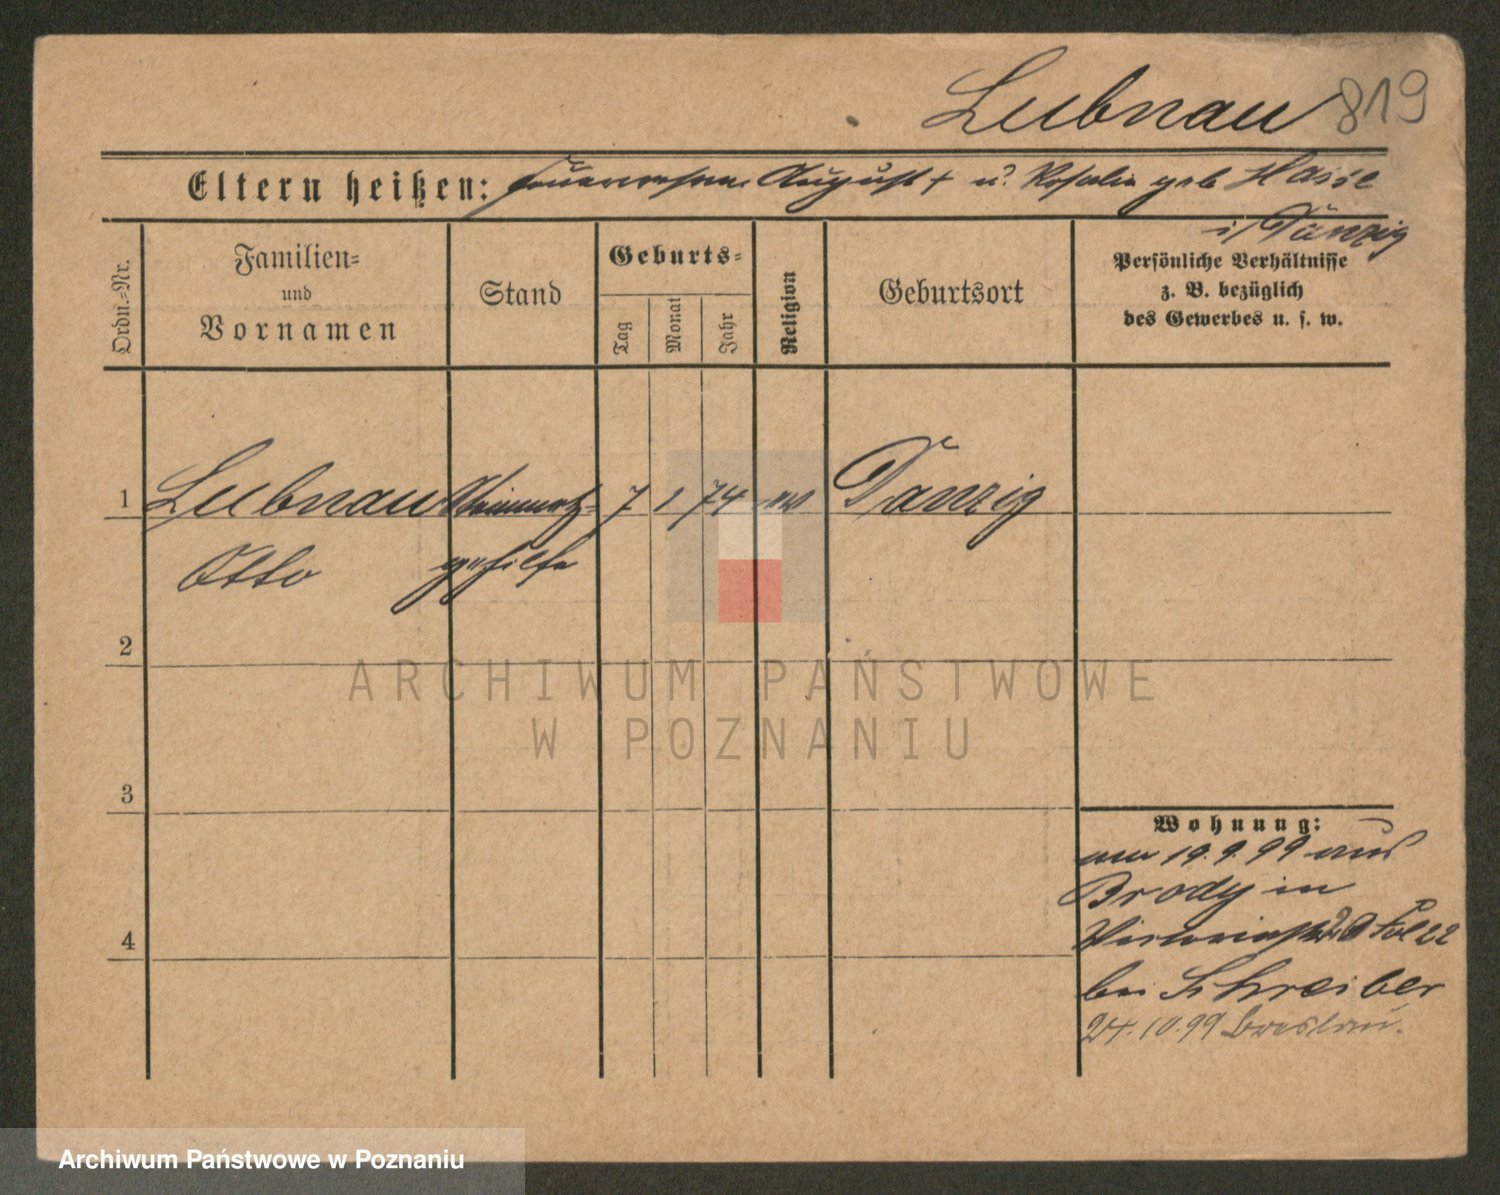 Lubnau 819
Eltern heißen: Feuerwehrm. August † u. Rosalie geb Hasse
i/ Danzig
Ordn.=Nr.
Familien=
und
Vornamen
Stand
Geburts=
Tag
Monat
Jahr
Religion
Geburtsort
Persönliche Verhältnisse
z. B. bezüglich
des Gewerbes u. s. w.
1 Lubnau 7 1 74 ev Danzig
Otto gehilfe
2
3
4
Wohnung:
am 19.9.99 aus
Brody in
22
bei Schreiber
24.10.99 Breslau.
ARCHIWUM PAŃSTWOWE
W POZNANIU
Archiwum Państwowe w Poznaniu